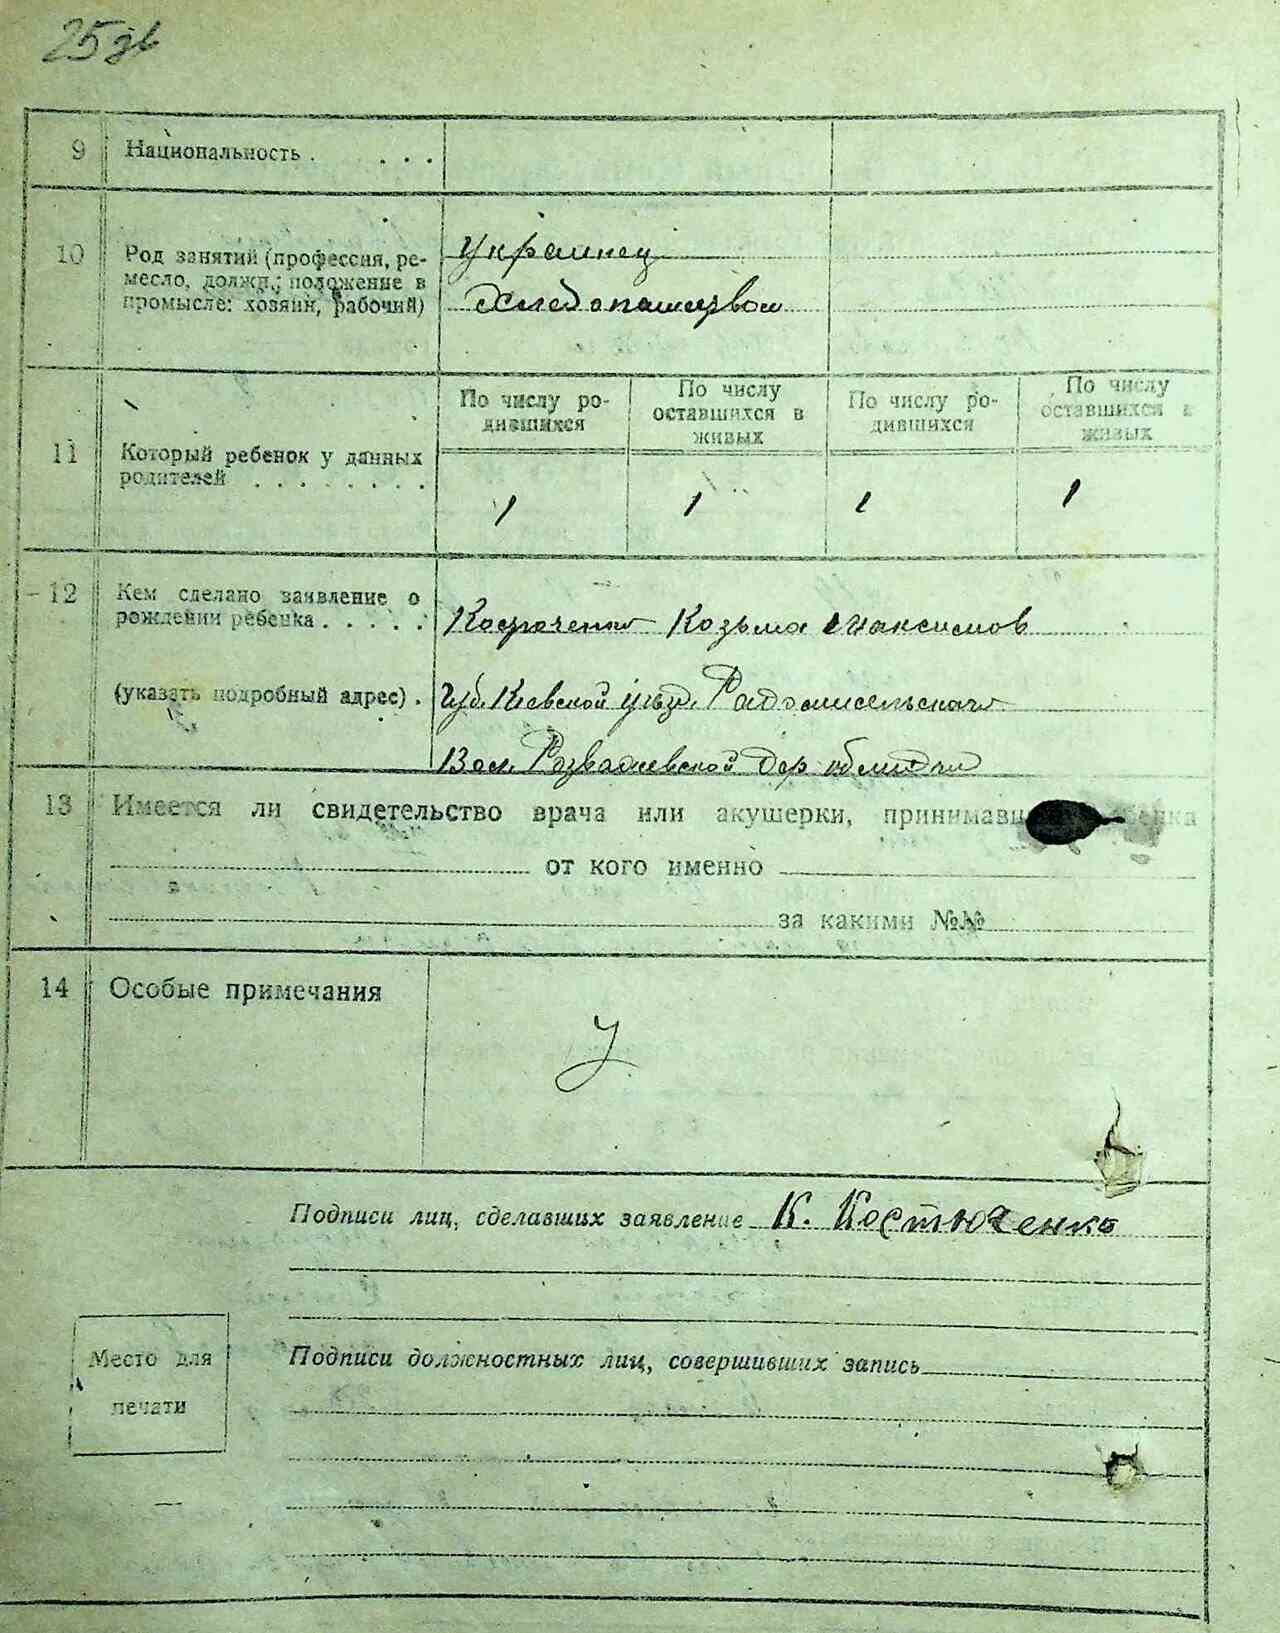 25 зв
9 Национальность . . . .
10 Род занятий (профессия, ре-
месло, должн.; положение в
промысле: хозяин, рабочий)
Украинец
Хлебопашеством
11 Который ребенок у данных
родителей . . . . . . . .
По числу ро-
дившихся
По числу
оставшихся в
живых
По числу ро-
дившихся
По числу
оставшихся в
живых
1 1 1 1
12 Кем сделано заявление о
рождении ребенка . . . . .
Костюченко Козьма Максимов
(указать подробный адрес) .
Губ. Киевской уезд. Радомисельского
Вол. Розважевской дер.
13 Имеется ли свидетельство врача или акушерки,
от кого именно
за какими №№
14 Особые примечания
У
Подписи лиц, сделавших заявление К. Костюченко
Место для
печати
Подписи должностных лиц, совершивших запись